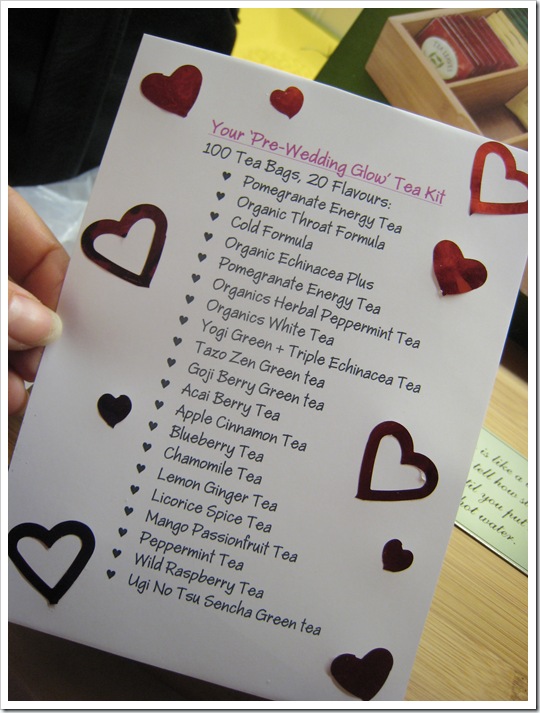 Your 'Pre-Wedding Glow' Tea Kit
100 Tea Bags, 20 Flavours:
♥ Pomegranate Energy Tea
♥ Organic Throat Formula
♥ Cold Formula
♥ Organic Echinacea Plus
♥ Pomegranate Energy Tea
♥ Organics Herbal Peppermint Tea
♥ Organics White Tea
♥ Yogi Green + Triple Echinacea Tea
♥ Tazo Zen Green tea
♥ Goji Berry Green tea
♥ Acai Berry Tea
♥ Apple Cinnamon Tea
♥ Blueberry Tea
♥ Chamomile Tea
♥ Lemon Ginger Tea
♥ Licorice Spice Tea
♥ Mango Passionfruit Tea
♥ Peppermint Tea
♥ Wild Raspberry Tea
♥ Ugi No Tsu Sencha Green tea
is like a
tell how
you put
hot water.